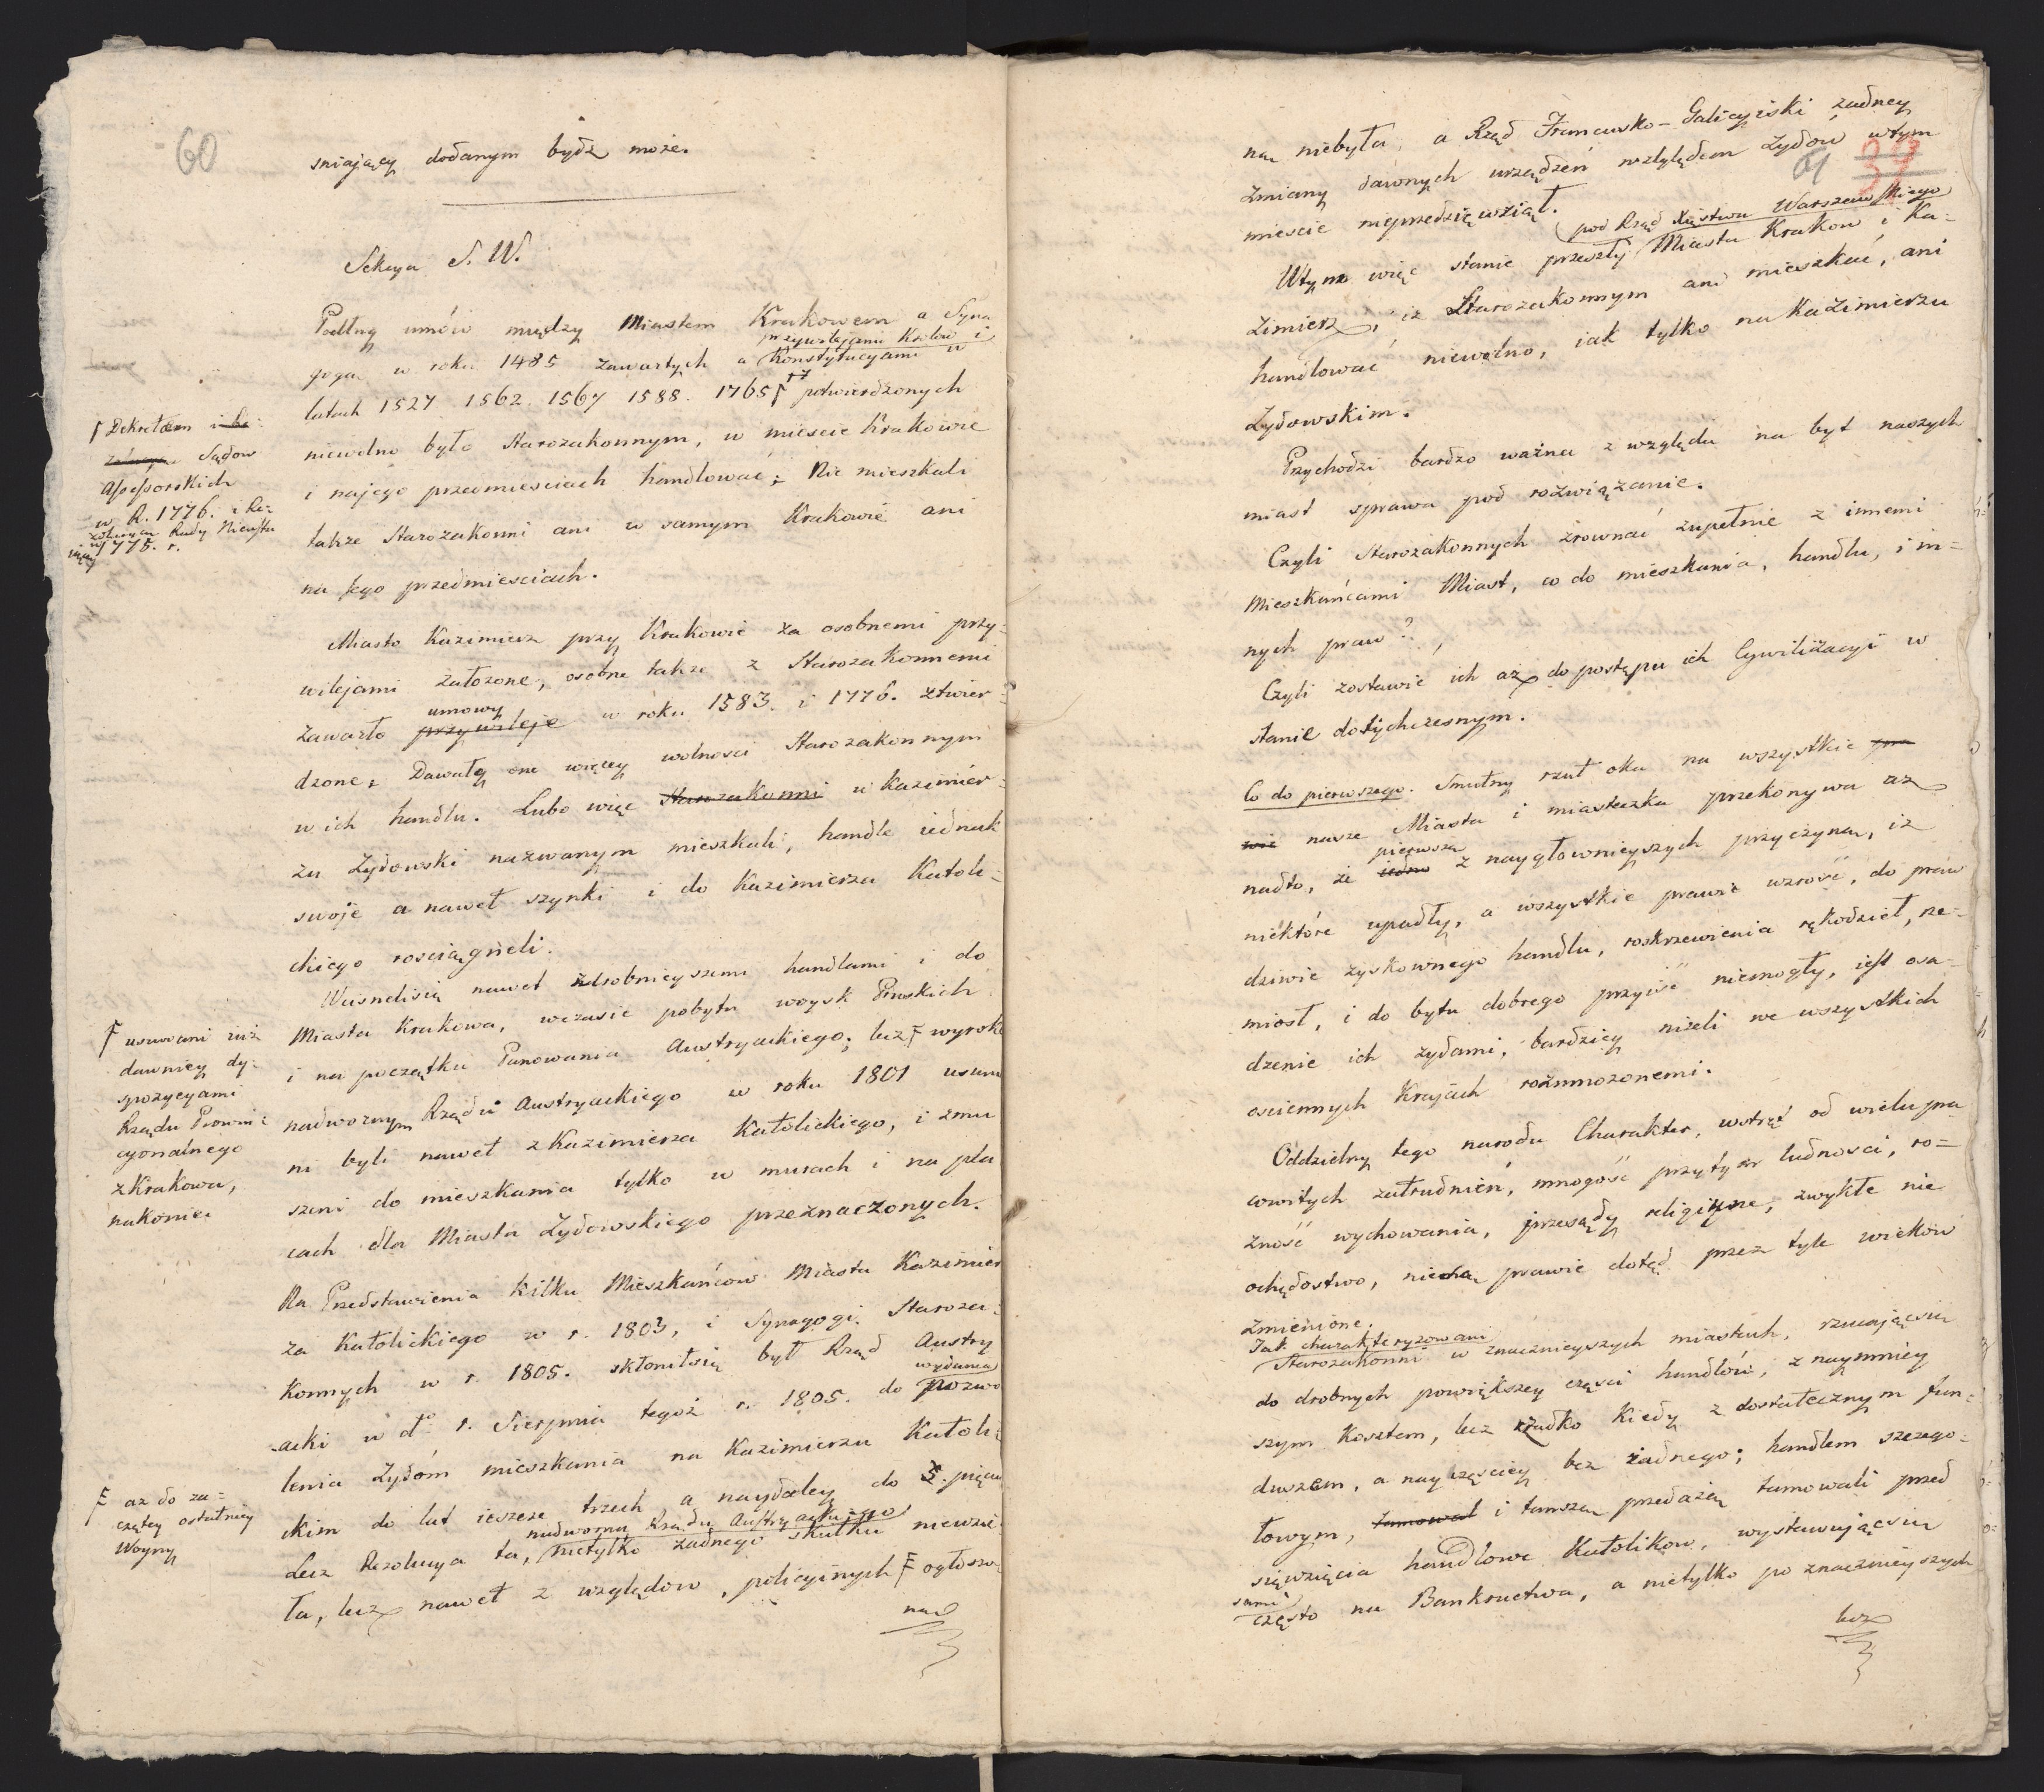 60
sniający dodanym bydź może.
Sekcya S. W.
Podług umów między Miastem Krakowem a Syna
gogą w roku 1485 zawartych a przywilejami Królów i Konstytucyami w
latach 1527 1562. 1567 1588. 1765 potwierdzonych
niewolno było Starozakonnym, w mieście Krakowie
i na jego przedmieściach handlować; Nie mieszkali
także Starozakonni ani w samym Krakowie ani
na Jego przedmieściach.
Dekretem i
Sądów
Assessorskich
w R. 1776. i Re-
zolucyą Rady Nieusta
iącey 1775. r.
Miasto Kazimierz przy Krakowie za osobnemi przy=
wilejami założone, osobne także z Starozakonnemi
zawarło przywileje umowy w roku 1583. i 1776. ztwier=
dzone; Dawały one więcey wolności Starozakonnym
w ich handlu. Lubo więc Starozakonni w Kazimier=
zu Żydowski nazwanym mieszkali, handle iednak
swoje a nawet szynki i do Kazimierza Katoli=
ckiego rosciągneli.
Wcisnelisię nawet zdrobnieyszemi handlami i do
Miasta Krakowa, wczasie pobytu woysk Pruskich
i na początku Panowania Austryackiego; lecz wyroke
nadwornym Rządu Austryackiego w roku 1801 usunę
ni byli nawet z Kazimierza Katolickiego, i zmu
szeni do mieszkania tylko w murach i na pla
cach dla Miasta Żydowskiego przeznaczonych.
usuwani już
dawniey dy=
spozycyami
Rządu Prowin=
cyonalnego
z Krakowa,
nakoniec
Na Przedstawienia kilku Mieszkańców Miasta Kazimier
za Katolickiego w r. 1803, i Synagogi Staroza=
konnych w r. 1805. skłoniłsię był Rząd Austry
acki w d° 1. Sierpnia tegoż r. 1805. do wydania pozwo
lenia Żydóm mieszkania na Kazimierzu Katoli=
ckim do lat ieszcze trzech, a naydaley do 5. pięciu
Lecz Rezolucya ta, nadworna Rządu Austryackiego nietylko żadnego skutku niewzię
ła, lecz nawet z względów policyinych ogłoszo
ną
aż do za=
czętey ostatniey
Woyny
61 39
ną niebyła, a Rząd Francusko-Galicyiski żadney
zmiany dawnych urządzeń względem Żydów wtym
mieście nieprzedsięwziął.
Wtym więc stanie przeszły pod Rząd Xięstwa Warszawskiego Miasta Kraków i Ka=
zimierz, iż Starozakonnym ani mieszkać, ani
handlować niewolno, iak tylko na Kazimierzu
Żydowskim.
Przychodzi bardzo ważna z względu na byt naszych
miast sprawa pod rozwiązanie.
Czyli Starozakonnych zrównać zupełnie z innemi
Mieszkańcami Miast, co do mieszkania, handlu, i in=
nych praw?
Czyli zostawić ich aż do postępu ich Cywilizacyi w
stanie dotychczesnym.
Co do pierwszego. Smutny rzut oka na wszystkie pra
wie nasze Miasta i miasteczka przekonywa aż
nadto, że iedna pierwsza z naygłównieyszych przyczyną, iż
niektóre upadły, a wszystkie prawie wzrość, do praw
dziwie zyskownego handlu, roskrzewienia rękodzieł, rze=
miosł, i do bytu dobrego przyiść niemogły, iest osa=
dzenie ich żydami, bardziey niżeli we wszystkich
ościennych Krajach rozmnożonemi.
Oddzielny tego narodu Charakter, wstręt od wielu pra
cowitych zatrudnień, mnogość przytym ludności, ró=
żność wychowania, przesądy religiyne, zwykłe nie
ochędostwo, niesą prawie dotąd przez tyle wieków
zmienione.
Tak charakteryzowani Starozakonni w znacznieyszych miastach, rzucającsię
do drobnych powiększey części handlów, z naymniey
szym Kosztem, lecz rzadko kiedy z dostatecznym fun=
duszem, a nayczęściey bez żadnego; handlem szczegó=
łowym, tamowali i tamszą przedażą tamowali przed
sięwzięcia handlowe Katolików, wystawującsię
sami często na Bankructwa, a nietylko po znacznieyszych
lecz